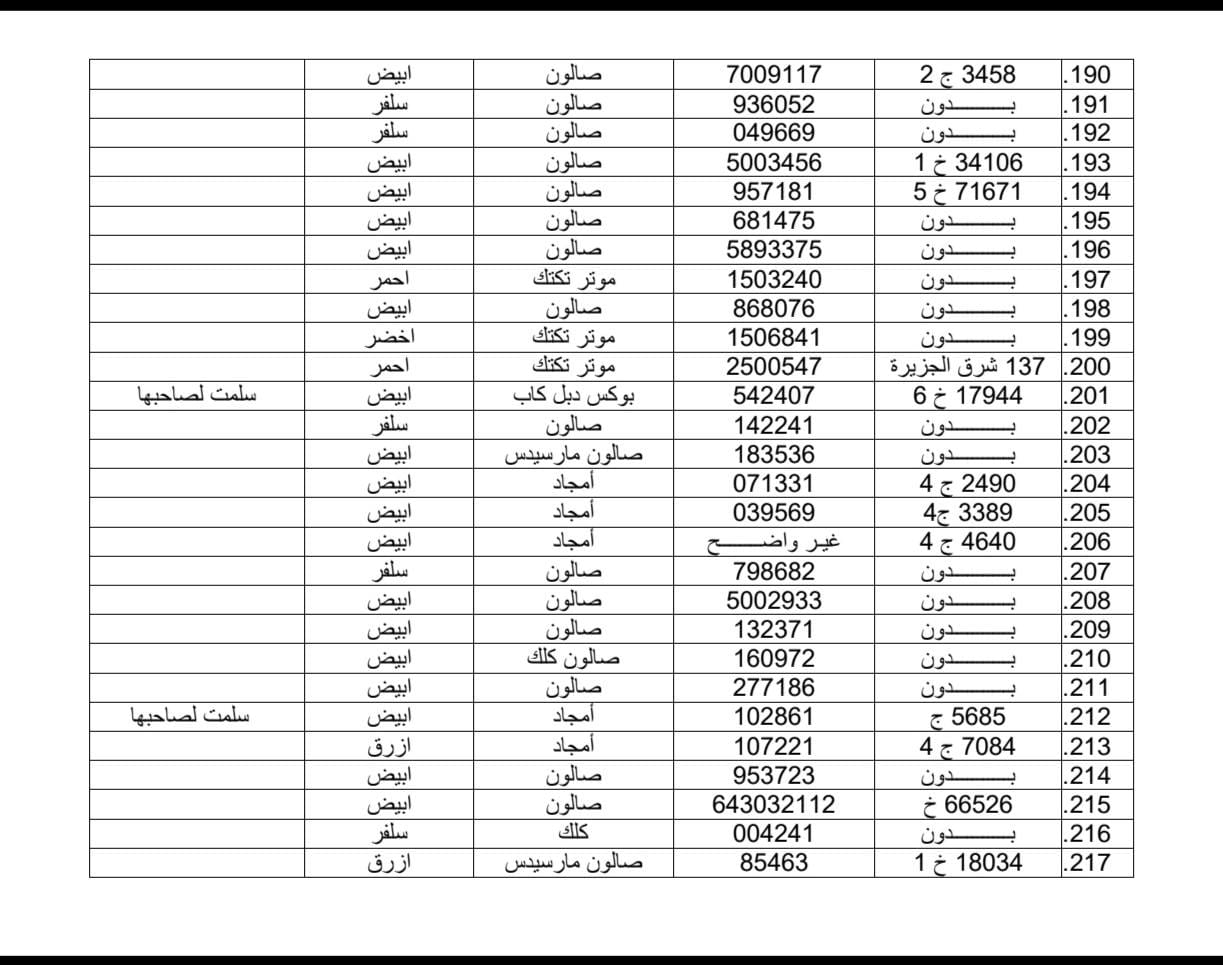 190. 3458 ج 2 7009117 صالون ابيض
191. بـــــــدون 936052 صالون سلفر
192. بـــــــدون 049669 صالون سلفر
193. 34106 خ 1 5003456 صالون ابيض
194. 71671 خ 5 957181 صالون ابيض
195. بـــــــدون 681475 صالون ابيض
196. بـــــــدون 5893375 صالون ابيض
197. بـــــــدون 1503240 موتر تكتك احمر
198. بـــــــدون 868076 صالون ابيض
199. بـــــــدون 1506841 موتر تكتك اخضر
200. 137 شرق الجزيرة 2500547 موتر تكتك احمر
201. 17944 خ 6 542407 بوكس دبل كاب ابيض سلمت لصاحبها
202. بـــــــدون 142241 صالون سلفر
203. بـــــــدون 183536 صالون مارسيدس ابيض
204. 2490 ج 4 071331 أمجاد ابيض
205. 3389 ج4 039569 أمجاد ابيض
206. 4640 ج 4 غير واضـــــــح أمجاد ابيض
207. بـــــــدون 798682 صالون سلفر
208. بـــــــدون 5002933 صالون ابيض
209. بـــــــدون 132371 صالون ابيض
210. بـــــــدون 160972 صالون كلك ابيض
211. بـــــــدون 277186 صالون ابيض
212. 5685 ج 102861 أمجاد ابيض سلمت لصاحبها
213. 7084 ج 4 107221 أمجاد ازرق
214. بـــــــدون 953723 صالون ابيض
215. 66526 خ 643032112 صالون ابيض
216. بـــــــدون 004241 كلك سلفر
217. 18034 خ 1 85463 صالون مارسيدس ازرق